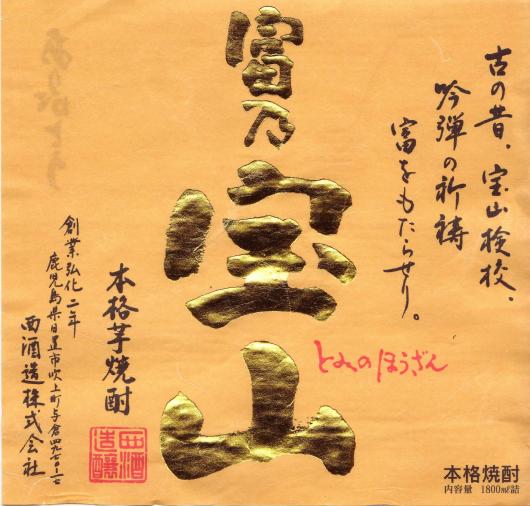 富乃宝山
古の昔、宝山検校、
吟弾の祈祷
富をもたらせり。
とみのほうざん
本格芋焼酎
創業弘化二年
鹿児島県日置市吹上町与倉四九七〇-十七
西酒造株式会社
西酒造醸
ありがとう
本格焼酎
内容量 1800ml詰